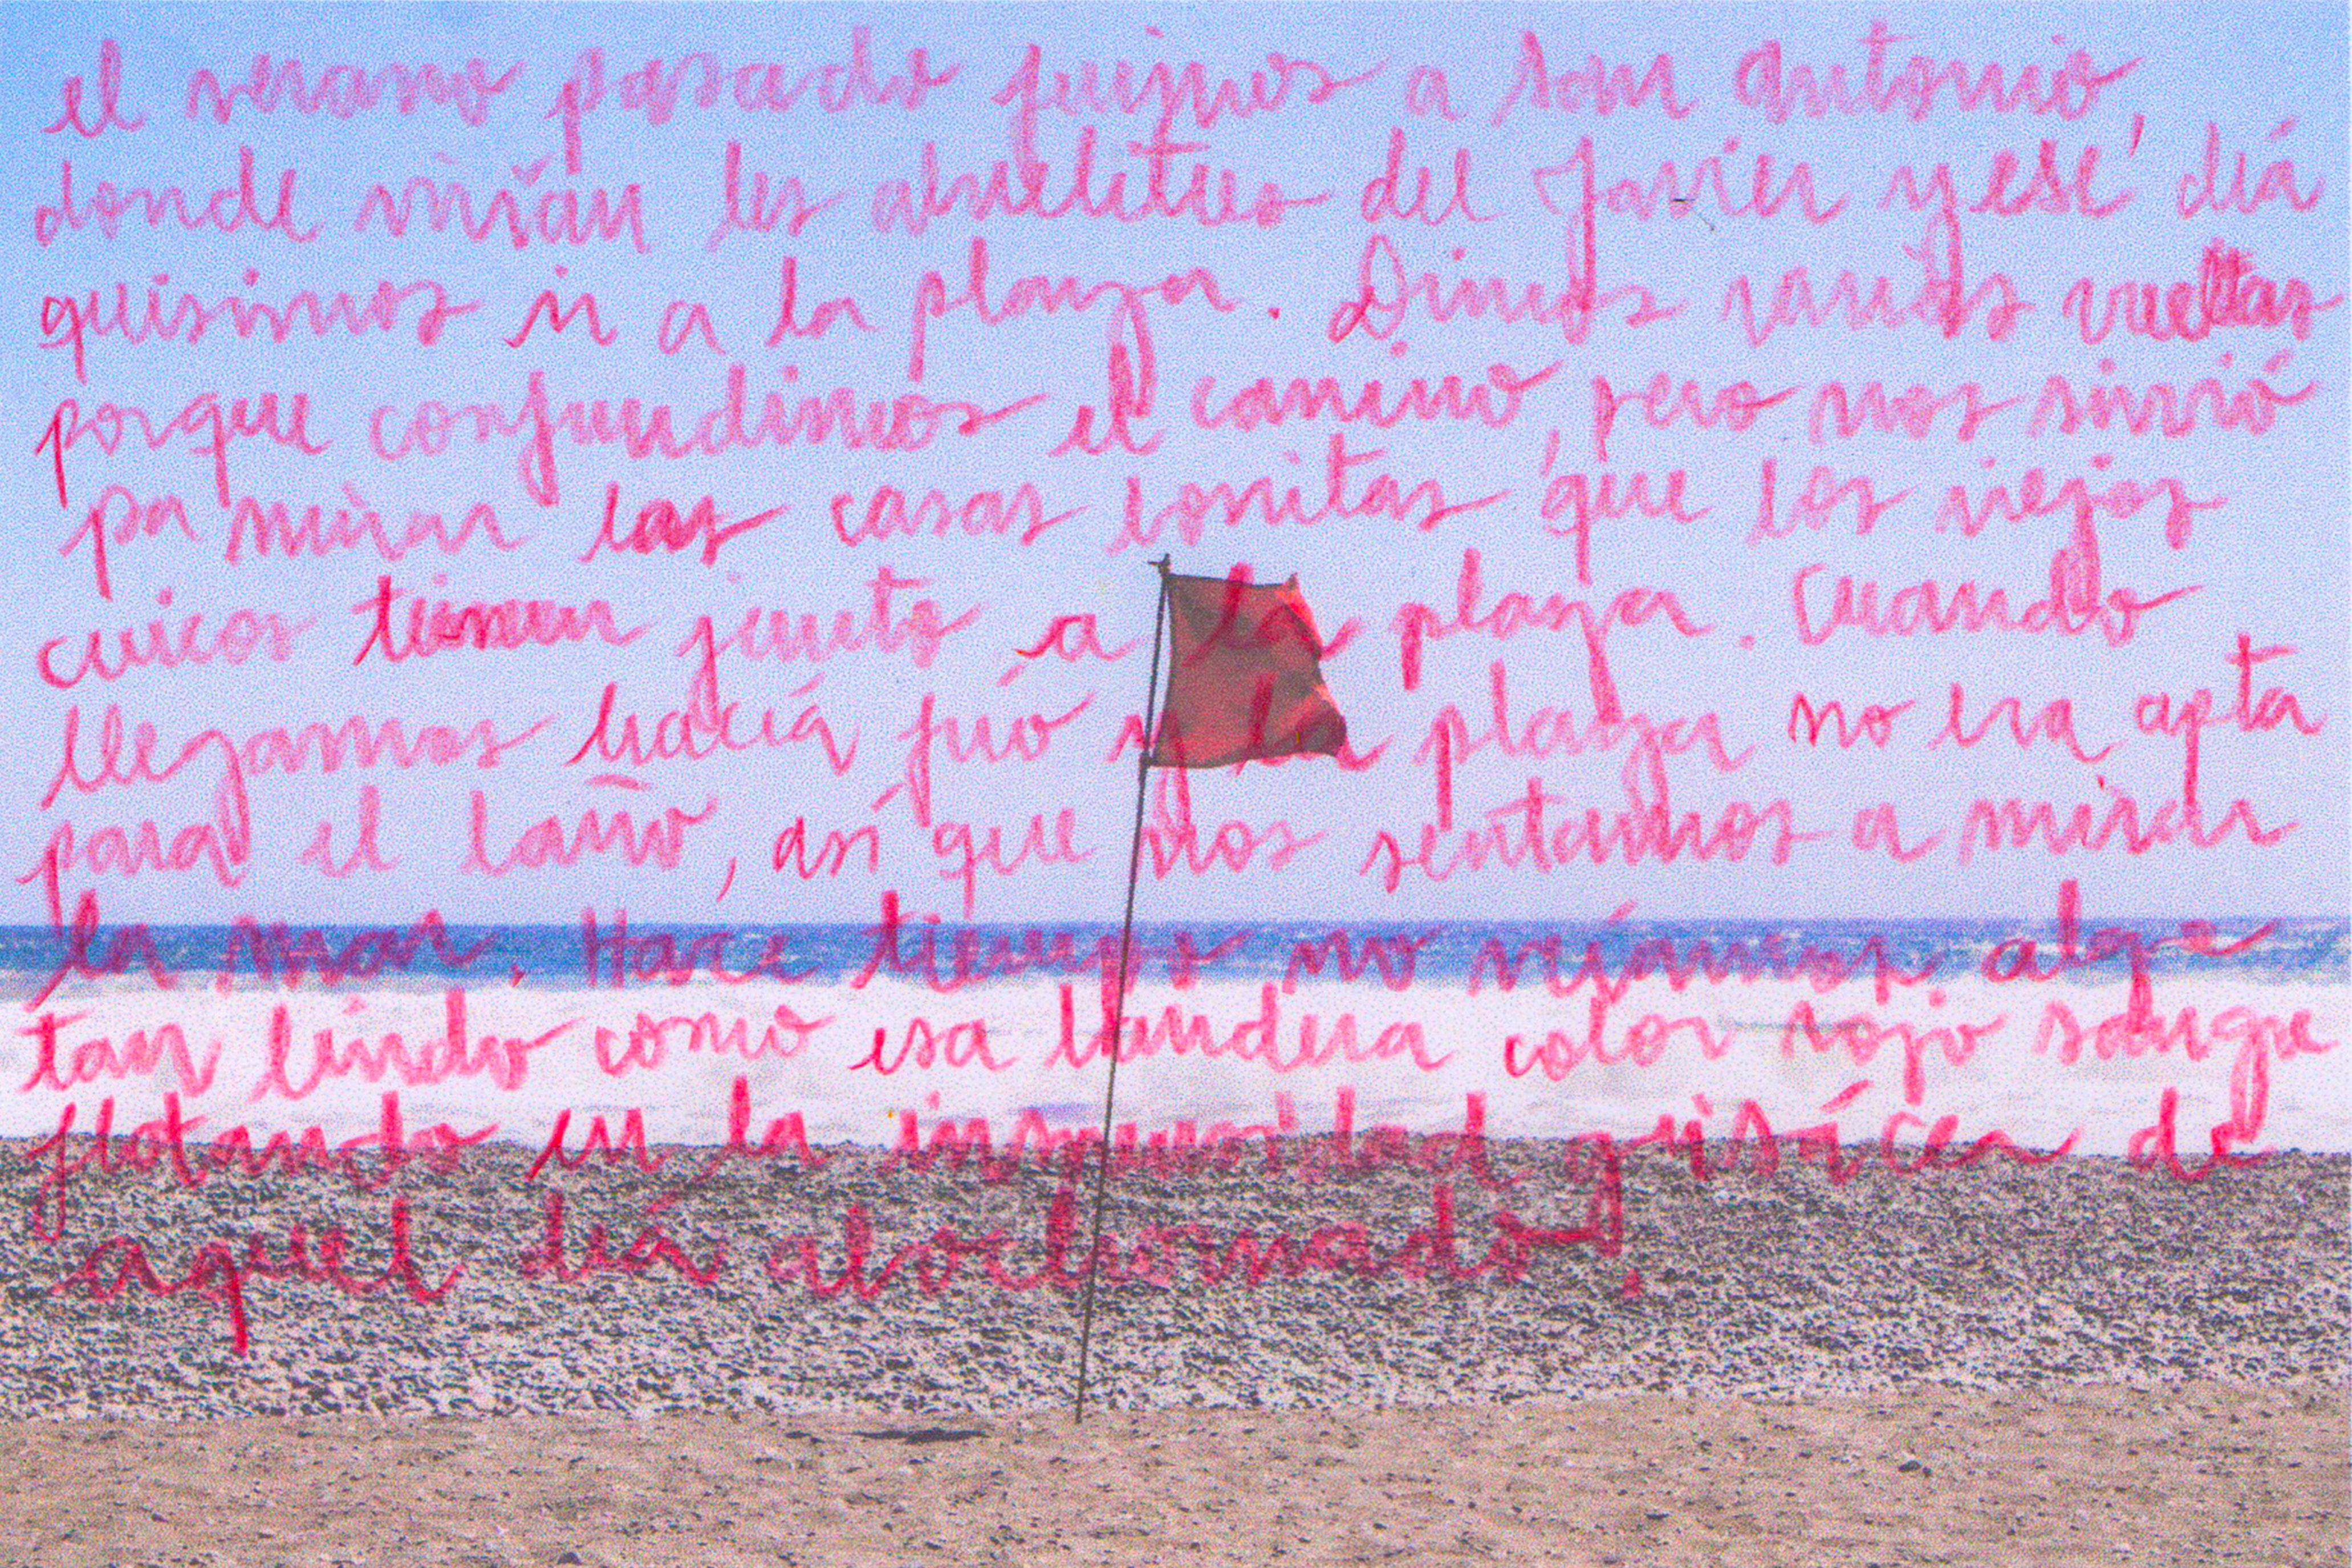 el verano pasado fuimos a san antonio,
donde vivían les abuelites del Javier y ese día
quisimos ir a la playa. Dimos varias vueltas
porque confundimos el camino, pero nos sirvió
pa mirar las casas bonitas que los viejos
cuicos tienen junto a la playa. Cuando
llegamos hacía frío y la playa no era apta
para el baño, así que nos sentamos a mirar
la mar. Hace tiempo no veíamos algo
tan lindo como esa bandera color rojo sangre
flotando en la inmensidad grisácea de
aquel día abochornado.